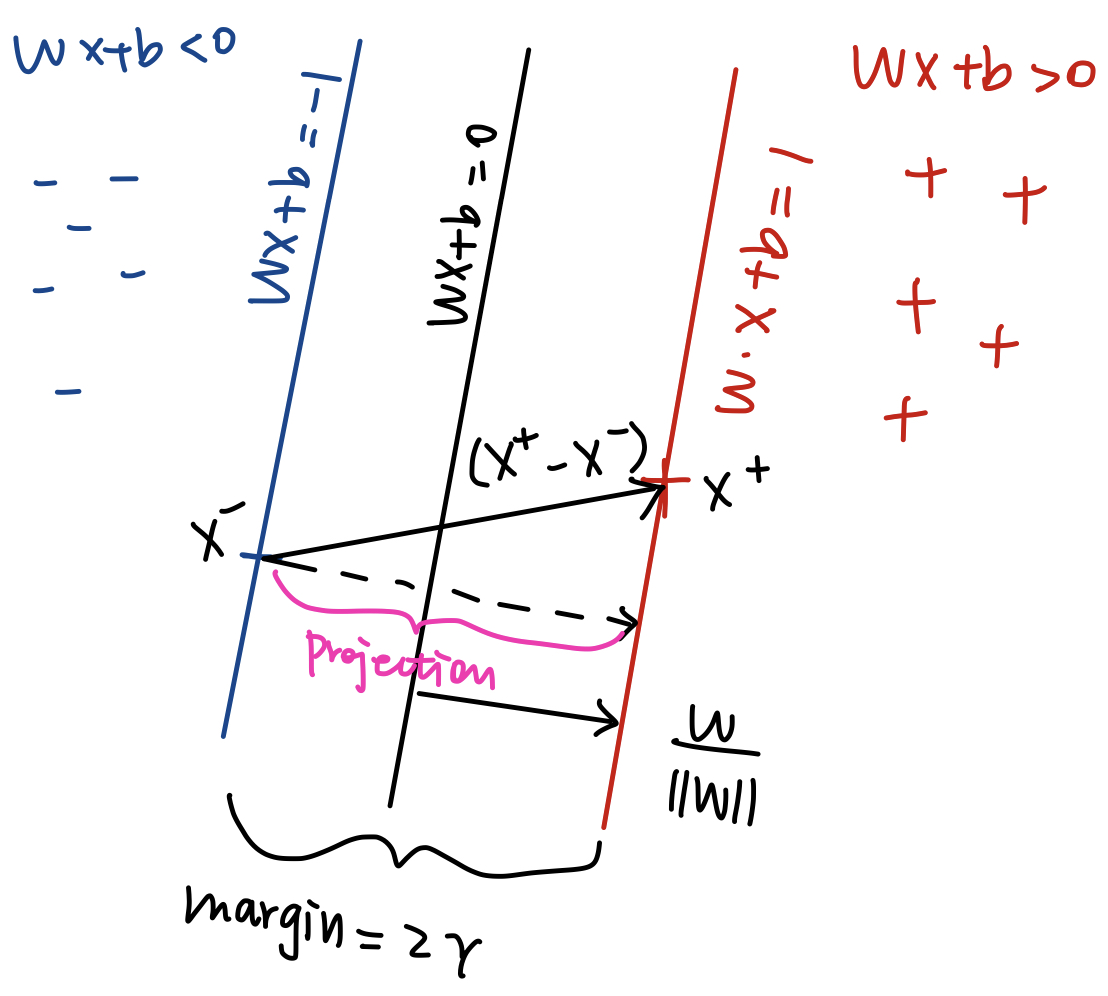 Wx+b<0
Wx+b>0
Wx+b=-1
Wx+b=0
W·x+b=1
- -
-
- -
-
+ +
+
+
+
(x⁺-x⁻)
x⁺
x⁻
Projection
W
||W||
margin=2γ